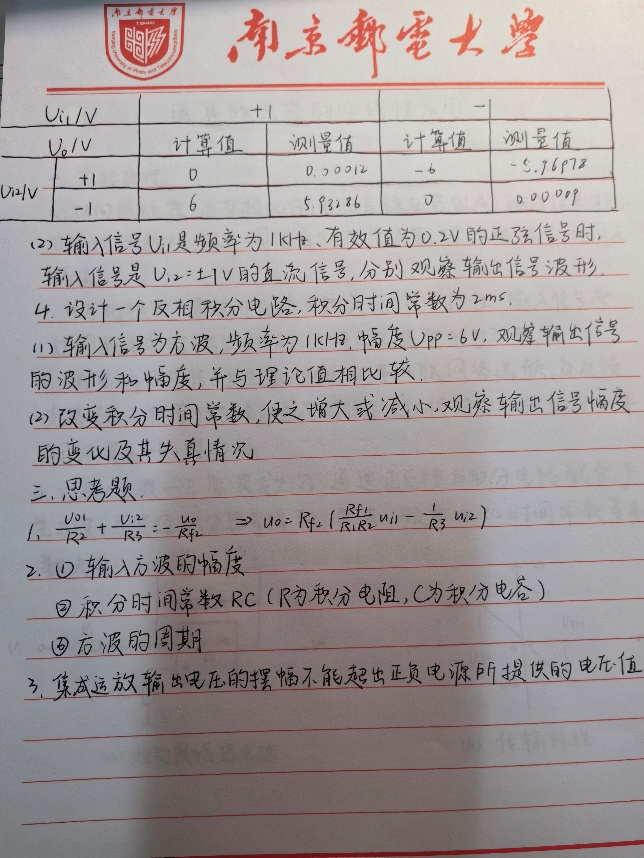 南京邮电大学
Nanjing University of Posts and Telecommunications
南京郵電大學
Ui1/V +1 -1
Uo/V 计算值 测量值 计算值 测量值
Ui2/V +1 0 0.00012 -6 -5.96978
-1 6 5.93286 0 0.00009
(2) 输入信号Ui1是频率为1KHz、有效值为0.2V的正弦信号时,
输入信号是Ui2=±1V的直流信号,分别观察输出信号波形.
4. 设计一个反相积分电路,积分时间常数为2ms.
(1) 输入信号为方波,频率为1KHz,幅度Upp=6V,观察输出信号
的波形和幅度,并与理论值相比较.
(2) 改变积分时间常数,使之增大或减小,观察输出信号幅度
的变化及其失真情况
三、思考题.
1. uo1/R2 + ui2/R3 = -uo/Rf2 ⇒ uo=Rf2(Rf1/R1R2 ui1 - 1/R3 ui2)
2. ① 输入方波的幅度
② 积分时间常数RC(R为积分电阻,C为积分电容)
③ 方波的周期
3. 集成运放输出电压的摆幅不能起出正负电源所提供的电压值